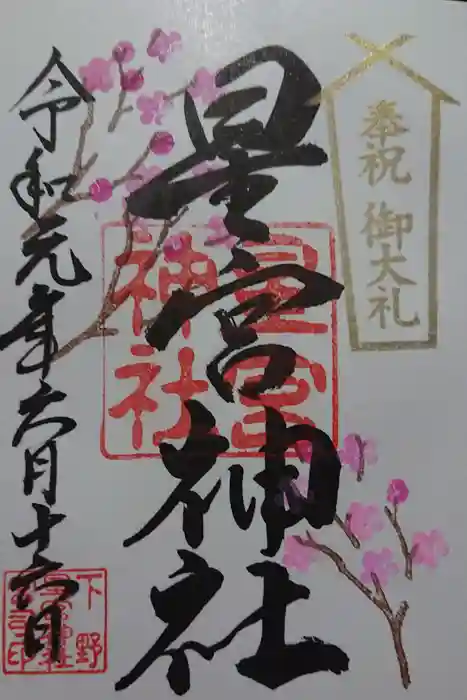 奉祝 御大礼
星宮神社
星宮
神社
令和元年六月十六日
下野